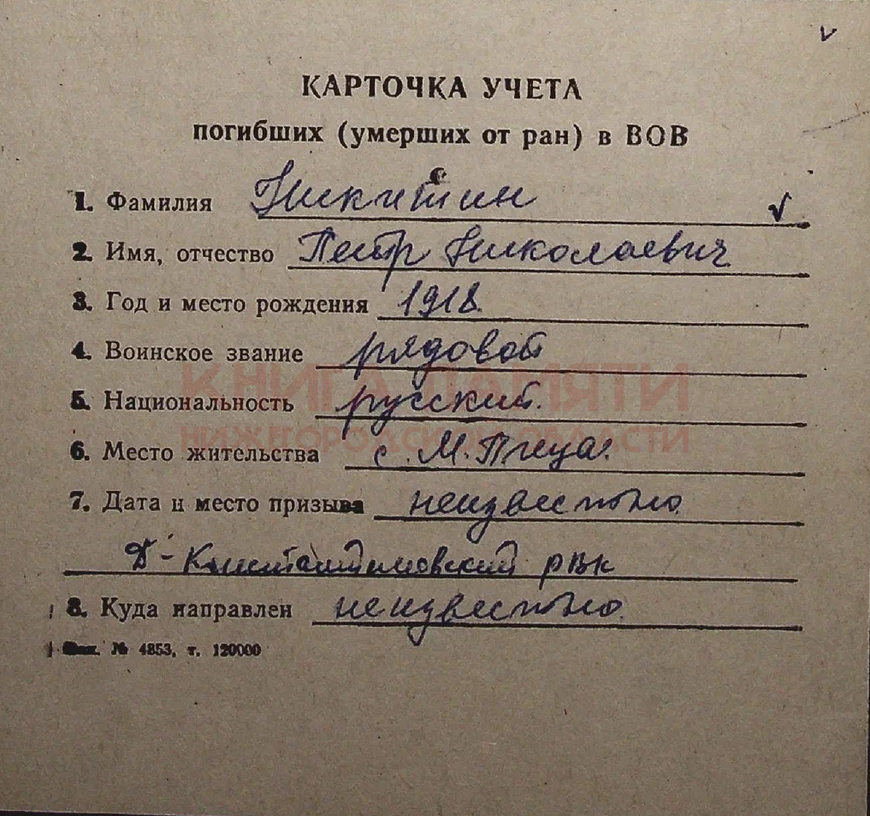 КАРТОЧКА УЧЕТА
погибших (умерших от ран) в ВОВ
1. Фамилия Никитин
2. Имя, отчество Петр Николаевич
3. Год и место рождения 1918.
4. Воинское звание рядовой
КНИГА ПАМЯТИ
5. Национальность русский.
НИЖЕГОРОДСКОЙ ОБЛАСТИ
6. Место жительства с. М. Пица.
7. Дата и место призыва неизвестно.
Д-Константиновский РВК
8. Куда направлен неизвестно.
Зак. № 4853, т. 120000